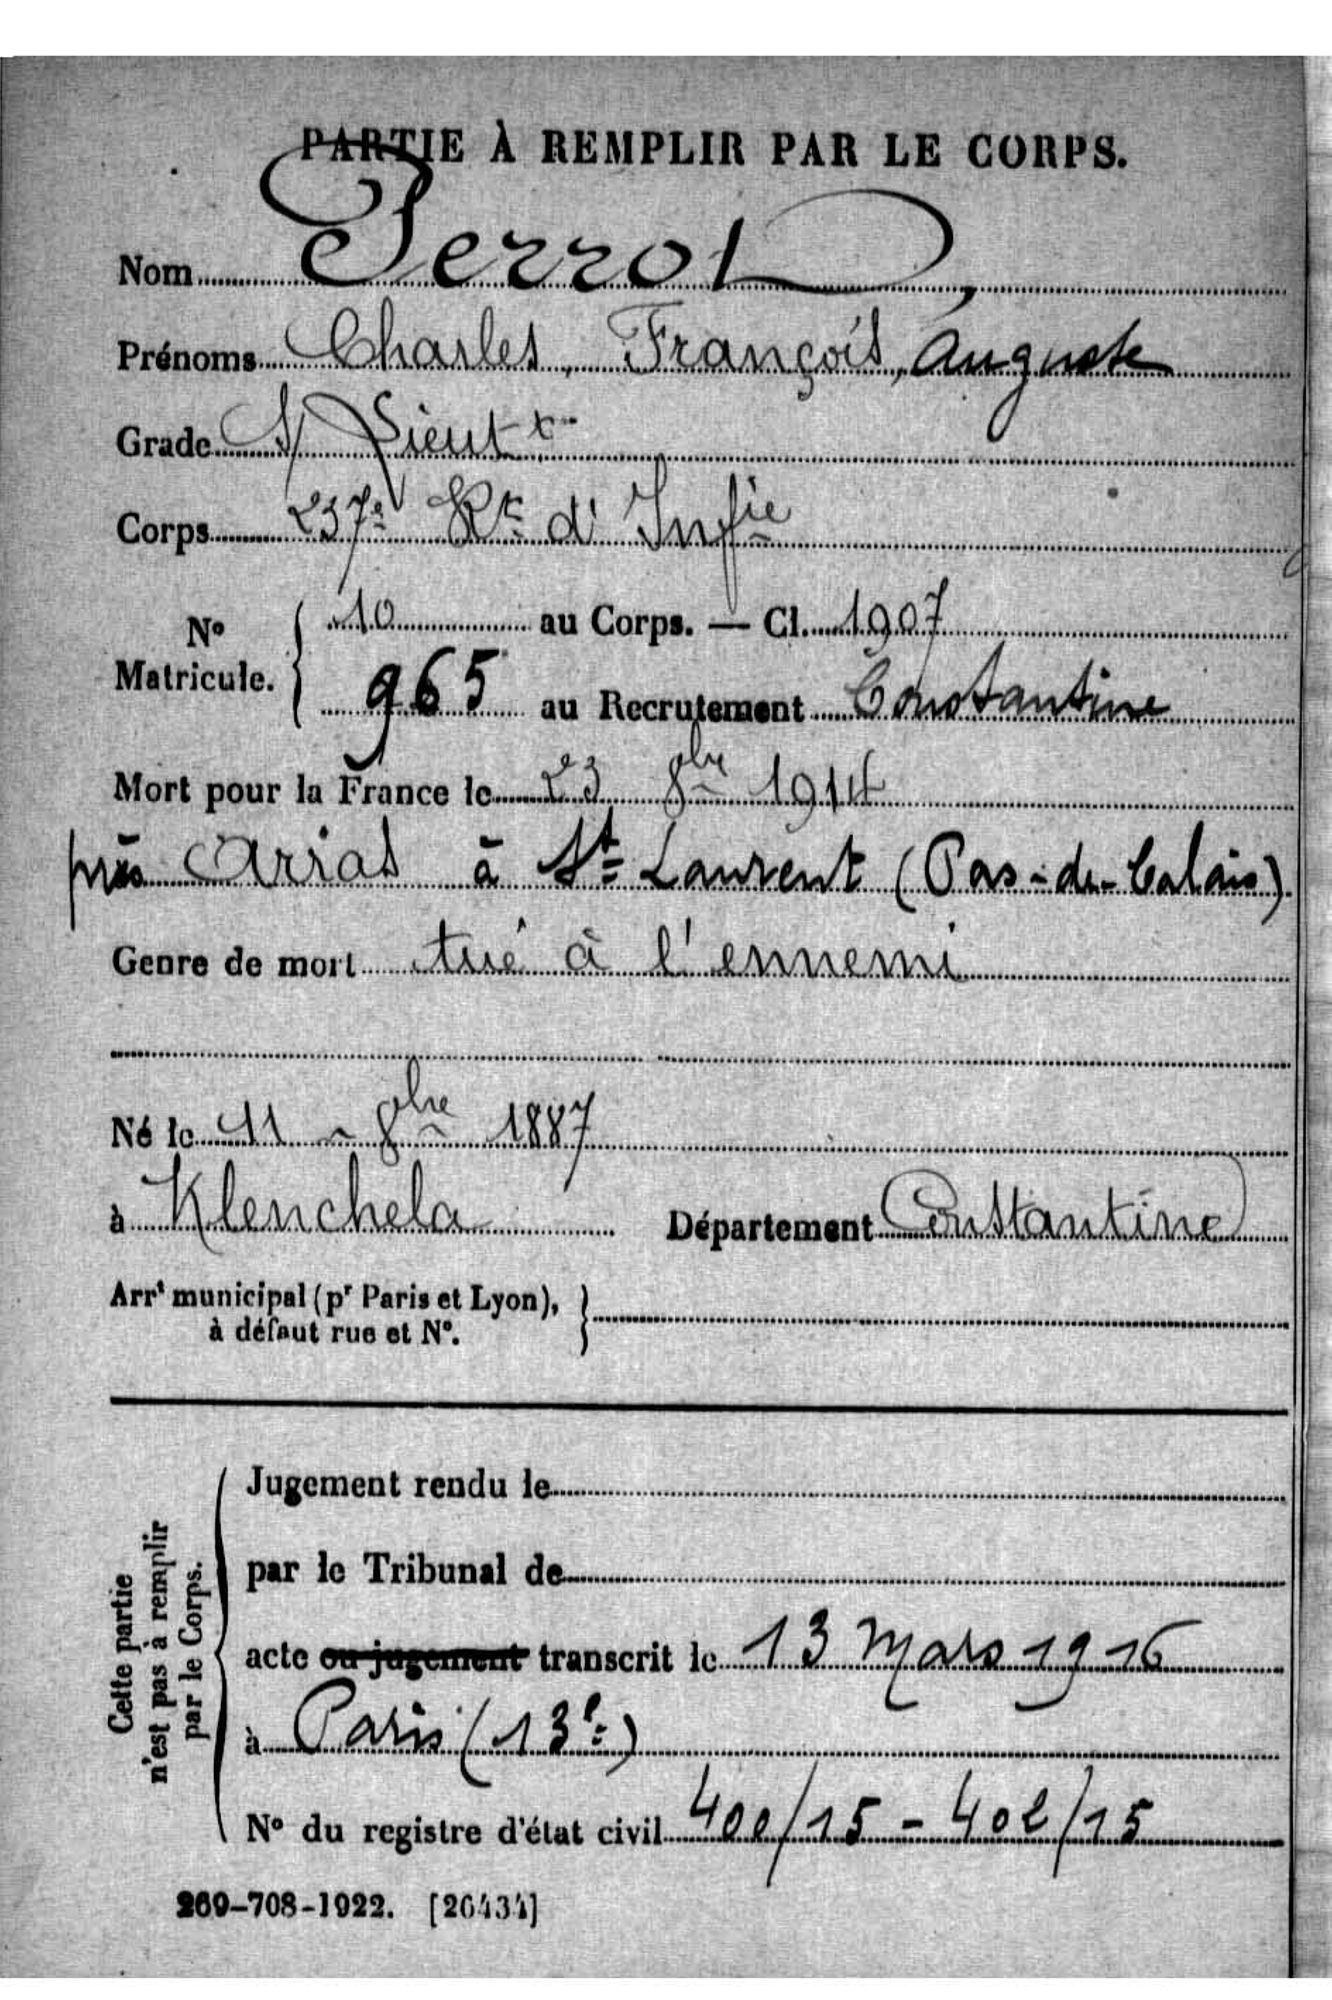 PARTIE À REMPLIR PAR LE CORPS.
Nom Perrot,
Prénoms Charles, François, Auguste
Grade S/ Lieutt
Corps 237e Rt d'Infie
No Matricule. 10 au Corps. — Cl. 1907
965 au Recrutement Constantine
Mort pour la France le 23 8bre 1914
près Arras à St Laurent (Pas-de-Calais)
Genre de mort tué à l'ennemi
Né le 11 - 8bre 1887
à Klenchela Département Constantine
Arrt municipal (pr Paris et Lyon),
à défaut rue et No.
Cette partie
n'est pas à remplir
par le Corps.
Jugement rendu le
par le Tribunal de
acte ou jugement transcrit le 13 Mars 1916
à Paris (13e)
No du registre d'état civil 400/15 - 402/15
269-708-1922. [26434]